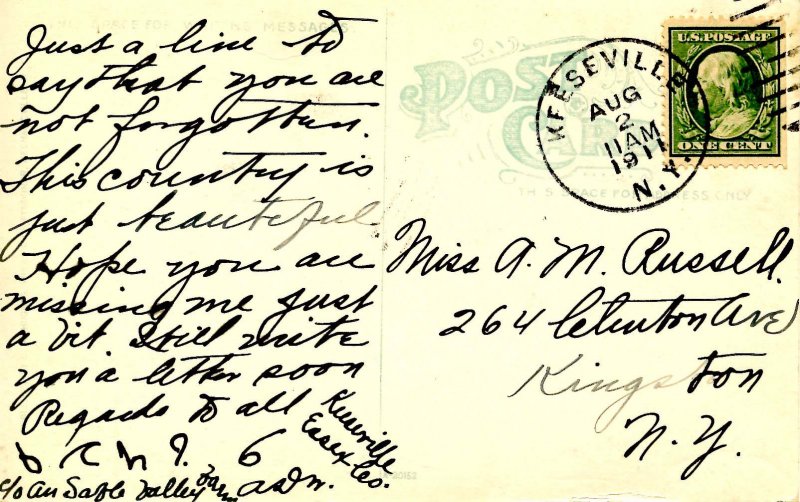 Just a line to
say that you are
not forgotten.
This country is
just beautiful
Hope you are
missing me just
a bit. Will write
you a letter soon
Regards to all
Keeseville
Essex Co.
c/o Au Sable Valley
POST
CARD
THIS SPACE FOR ADDRESS ONLY
KEESEVILLE
AUG
2
11AM
1911
N.Y.
U.S. POSTAGE
ONE CENT
Miss A. M. Russell.
264 Clinton Ave
Kingston
N.Y.
20152